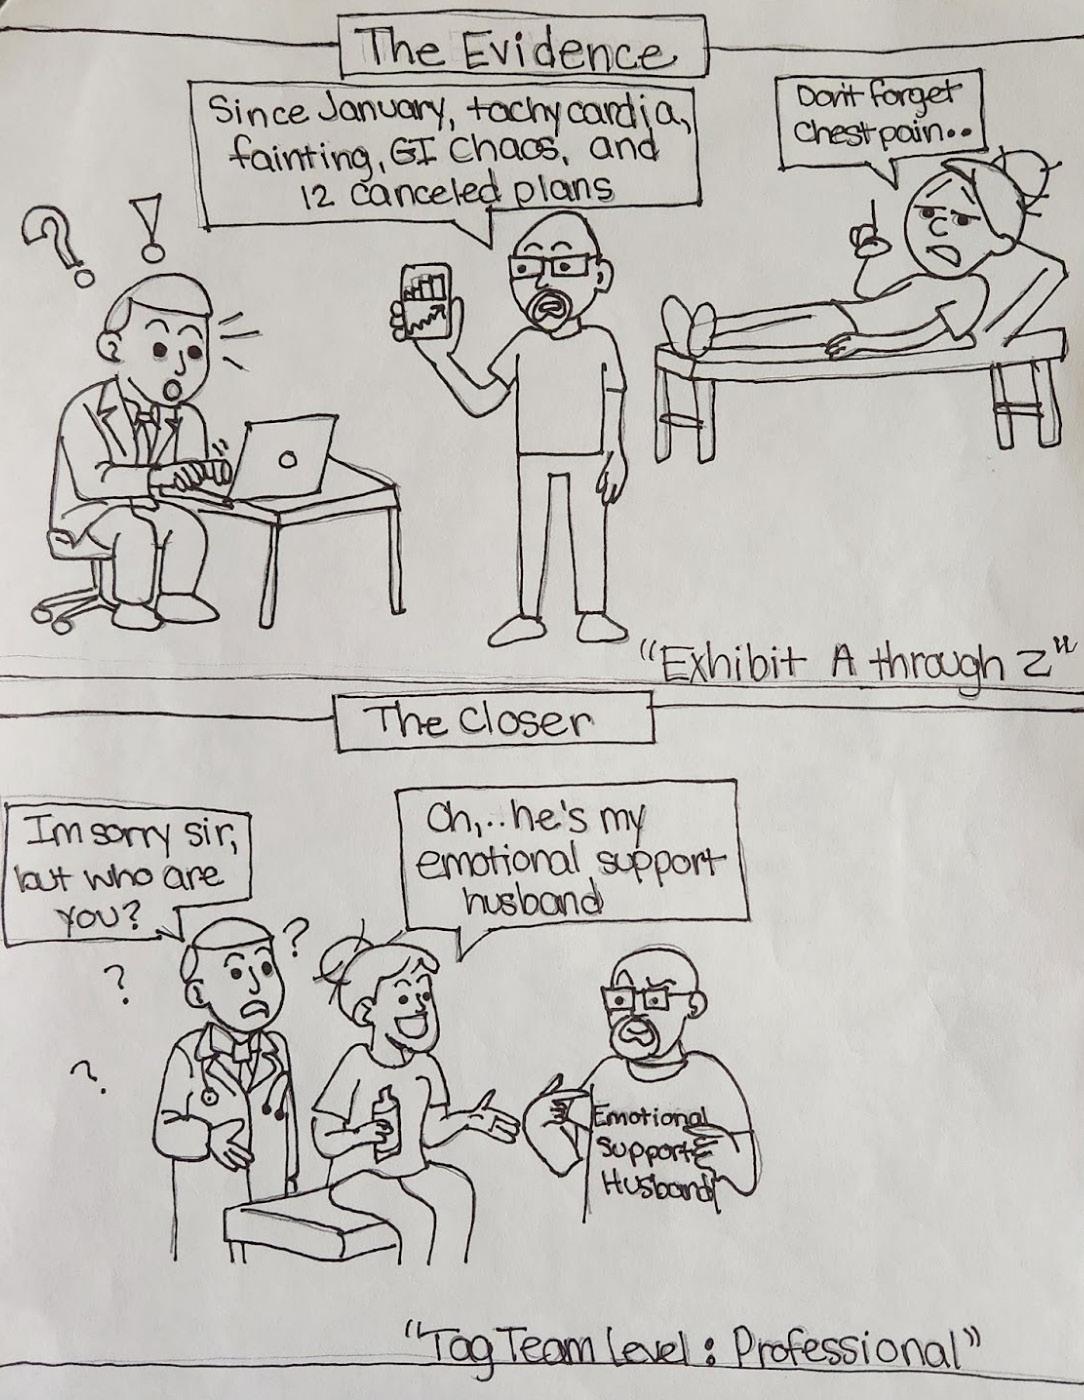 The Evidence
Since January, tachycardia,
fainting, GI Chaos, and
12 canceled plans
Don't forget
Chestpain..
? !
"Exhibit A through Z"
The Closer
Im sorry sir,
but who are
you?
Oh,..he's my
emotional support
husband
?
?
?
Emotional
Support
Husband
"Tag Team Level: Professional"